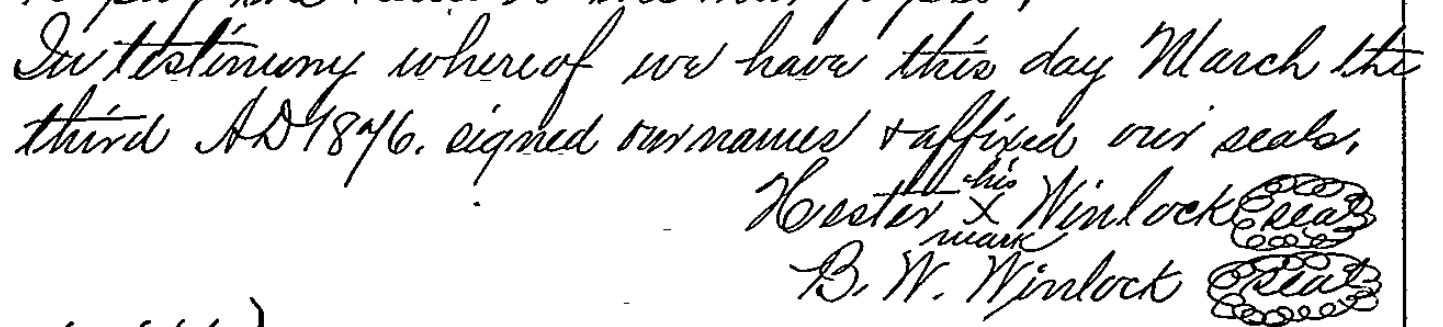 In testimony whereof we have this day March the
third AD 1876. signed our names & affixed our seals.
his
Hester X Winlock seal
mark
B. W. Winlock seal